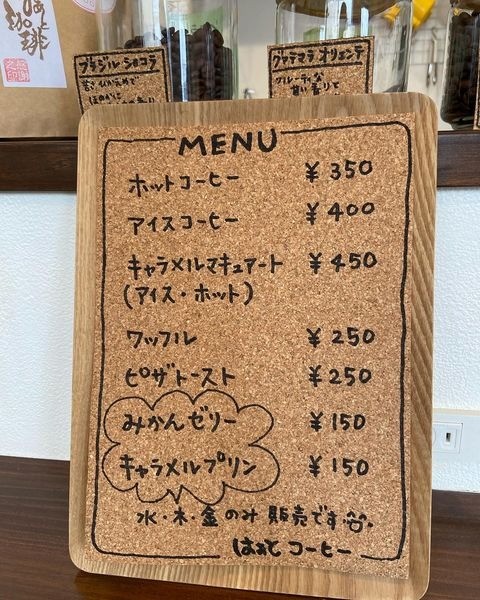 珈琲
感謝之印
ブラジル ショコラ
グァテマラ オリエンテ
フルーティな
甘い香りで
MENU
ホットコーヒー ¥350
アイスコーヒー ¥400
キャラメルマキュアート ¥450
(アイス・ホット)
ワッフル ¥250
ピザトースト ¥250
みかんゼリー ¥150
キャラメルプリン ¥150
水・木・金のみ 販売です
はぁとコーヒー